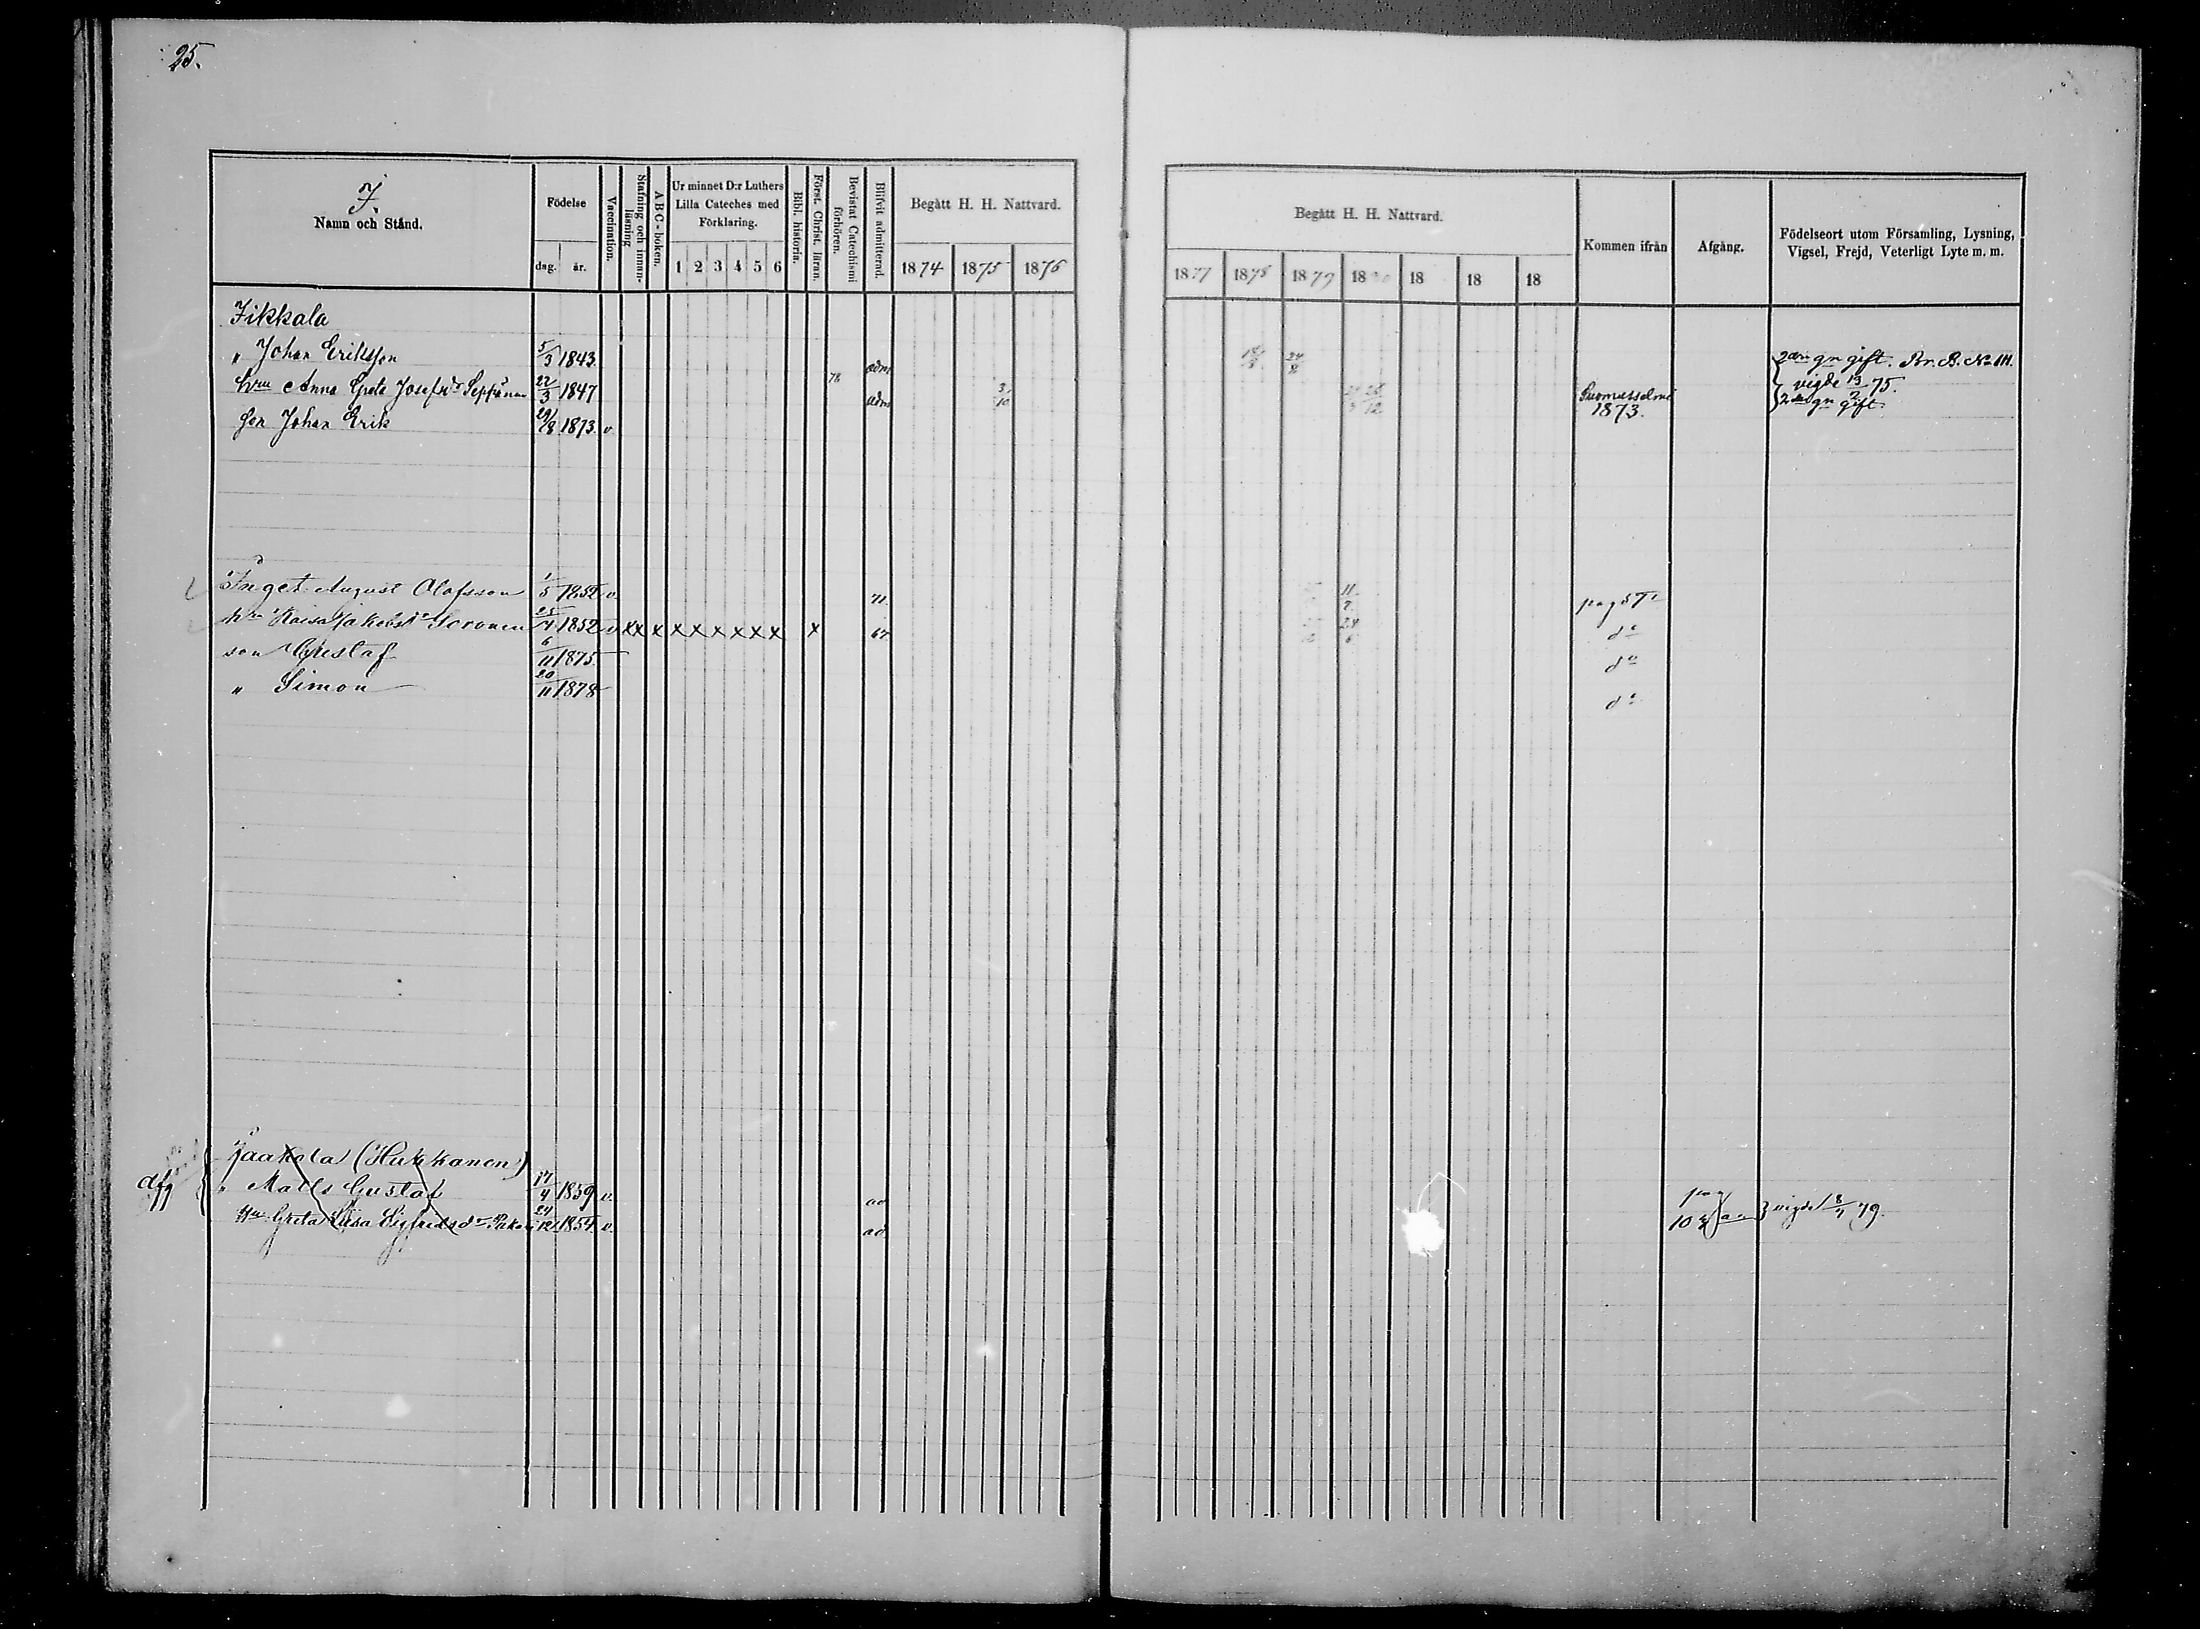 25.
I.
Namn och Stånd.
Födelse
dag. år.
Vaccination.
Stafning och innan-läsning
A B C-boken.
Ur minnet D:r Luthers Lilla Cateches med Förklaring.
1 2 3 4 5 6
Bibl. historia.
Först. Christ. läran.
Bevistat Catechismi förhören.
Blifvit admitterad.
Begått H. H. Nattvard.
1874 1875 1876
Begått H. H. Nattvard.
1877 1878 1879 18 18 18 18
Kommen ifrån
Afgång.
Födelseort utom Församling, Lysning, Vigsel, Frejd, Veterligt Lyte m. m.
Iikkala
" Johan Eriksson 5/3 1843. adm 24 2dra gn gift. Br. B. No III.
hru Anna Greta Josefsdr Seppänen 22/3 1847 78 adm 3/10 25/12 Suomussalmi 1873. vigde 13/2 75. 2dra gn gift.
son Johan Erik 29/8 1873. v
Inget August Olofsson 1/5 1852 v. 71 11/7 pag 57
hru Kaisa Jakobsdr Soronen 25/4 1852 v x x x x x x x x x x 67 24/6 do
son Gustaf 6/11 1875 do
" Simon 20/11 1878 do
afg
Jaakola (Hukkanen)
" Matts Gustaf 17/4 1859 v. ad pag
Hu Greta Lisa Sigfridsdr 24/12 1854 v. ad 10 vigde 8/7 79.